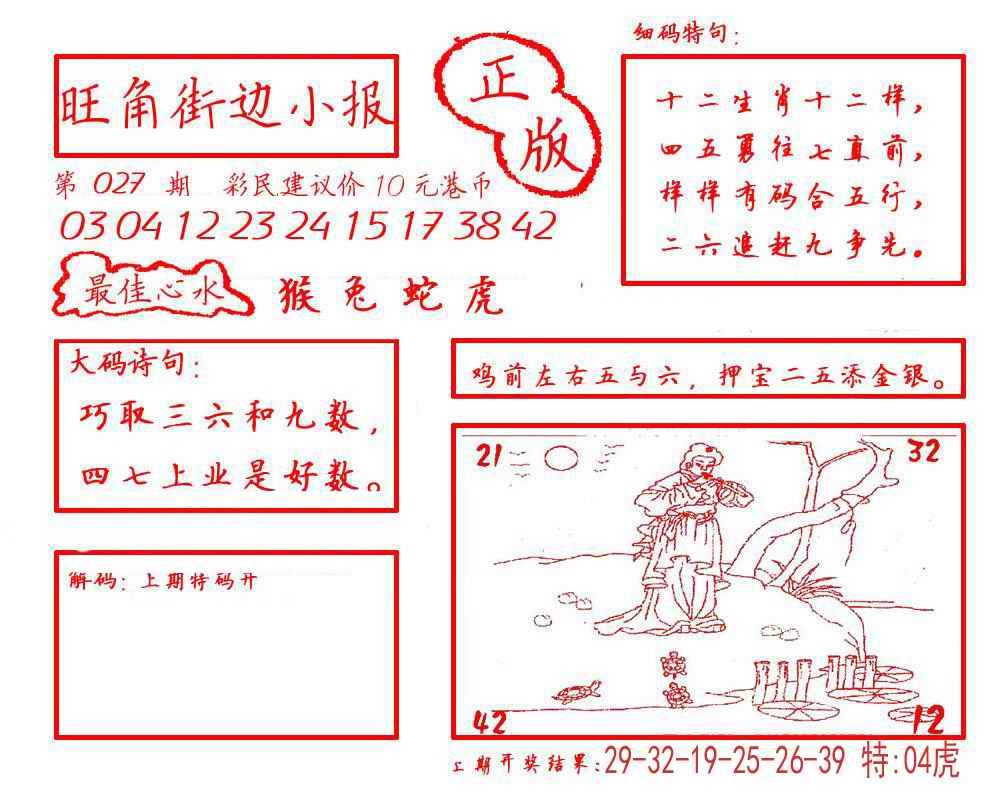 旺角街边小报
正版
第 027 期 彩民建议价 10 元港币
03 04 12 23 24 15 17 38 42
最佳心水 猴兔蛇虎
细码特句：
十二生肖十二样，
四五勇往七直前，
样样有码合五行，
二六追赶九争先。
大码诗句：
巧取三六和九数，
四七上业是好数。
鸡前左右五与六，押宝二五添金银。
解码：上期特码开
21
32
42
12
上期开奖结果：29-32-19-25-26-39 特:04虎